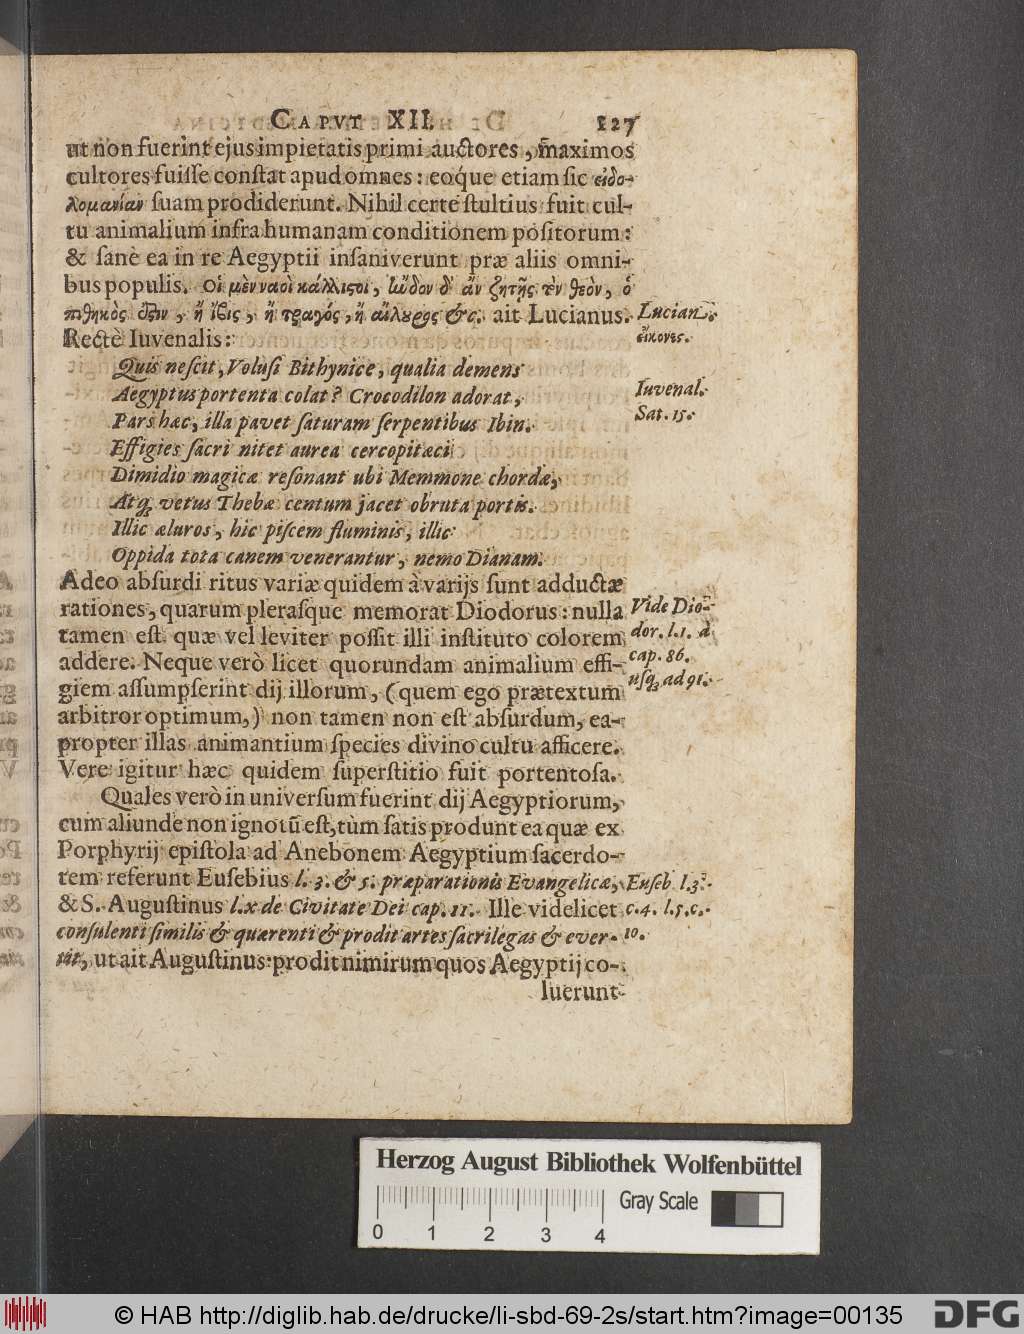 CAPVT XII. 127
ut non fuerint ejus impietatis primi auctores, maximos
cultores fuisse constat apud omnes: eoque etiam sic εἰδο-
λομανίαν suam prodiderunt. Nihil certe stultius fuit cul-
tu animalium infra humanam conditionem positorum:
& sanè ea in re Aegyptii insaniverunt præ aliis omni-
bus populis. οἱ μὲν ναοὶ κάλλιστοι, ἔνδον δ' ἂν ζητῇς τὸν θεὸν, ὁ
πιθηκὸς ὅζιν, ἢ ἶβις, ἢ τραγός, ἢ αἴλουρος &c. ait Lucianus. Lucian.
Rectè Iuvenalis: εἰκονες.
Quis nescit, Volusi Bithynice, qualia demens
Aegyptus portenta colat? Crocodilon adorat, Iuvenal.
Pars hæc, illa pavet saturam serpentibus Ibin. Sat. 15.
Effigies sacri nitet aurea cercopiteci
Dimidio magicæ resonant ubi Memmone chordæ,
Atq; vetus Thebæ centum jacet obruta portis.
Illic æluros, hic piscem fluminis, illic
Oppida tota canem venerantur, nemo Dianam.
Adeo absurdi ritus variæ quidem à varijs sunt adductæ
rationes, quarum plerasque memorat Diodorus: nulla Vide Dio-
tamen est quæ vel leviter possit illi instituto colorem dor. l. 1. à
addere. Neque verò licet quorundam animalium effi- cap. 86.
giem assumpserint dij illorum, (quem ego prætextum usq; ad 91.
arbitror optimum,) non tamen non est absurdum, ea-
propter illas animantium species divino cultu afficere.
Vere igitur hæc quidem superstitio fuit portentosa.
Quales verò in universum fuerint dij Aegyptiorum,
cum aliunde non ignotū est, tùm satis produnt ea quæ ex
Porphyrij epistola ad Anebonem Aegyptium sacerdo-
tem referunt Eusebius l. 3. & 5. præparationis Evangelicæ, Euseb. l. 3.
& S. Augustinus l. x de Civitate Dei cap. 11. Ille videlicet c. 4. l. 5. c.
consulenti similis & quærenti & prodit artes sacrilegas & ever- 10.
tit, ut ait Augustinus: prodit nimirum quos Aegyptij co-
luerunt
Herzog August Bibliothek Wolfenbüttel
Gray Scale
0 1 2 3 4
© HAB http://diglib.hab.de/drucke/li-sbd-69-2s/start.htm?image=00135 DFG